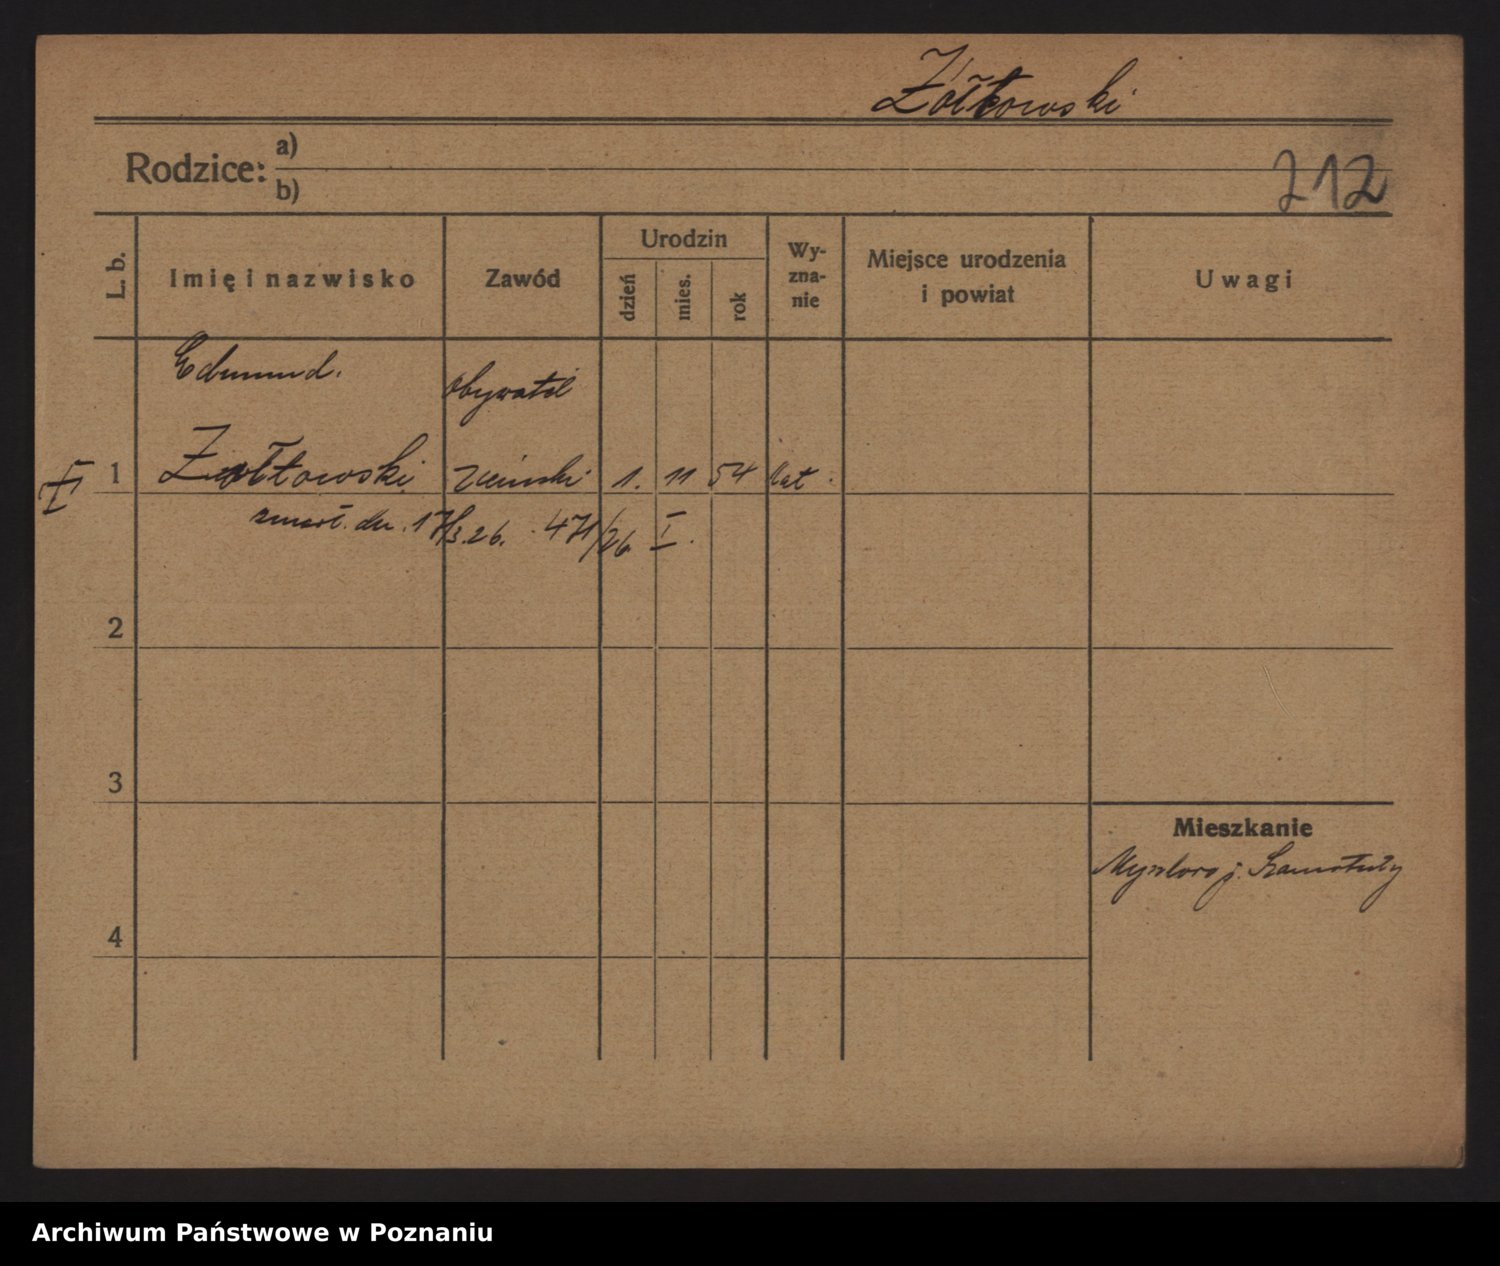 Żółtowski
Rodzice: a)
b)
212
L. b.
Imię i nazwisko
Zawód
Urodzin
dzień
mies.
rok
Wy-
zna-
nie
Miejsce urodzenia
i powiat
Uwagi
Edmund.
obywatel
I 1 Żółtowski ziemski 1. 11 54 kat.
zmarł. dn. 17/3.26. 471/26 I.
2
3
Mieszkanie
p. Szamotuły
4
Archiwum Państwowe w Poznaniu